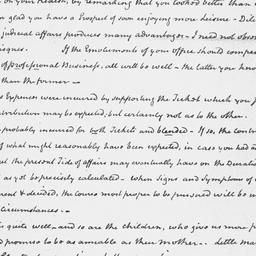 on your Health, by remarking that you looked better than
glad you have a Prospect of soon enjoying more leisure -
judicial affairs produces many advantages - I need not
If the Emoluments of your office should
of professional Business, all will be well - the latter you know
than the former -
Expenses were incurred by supporting the Ticket which you
may be expected, but certainly not as to the other.
probably incurred for both Tickets and blended - If so, the
of what might reasonably have been expected, in case you had
the present Tide of affairs may eventually have on the Duration
as yet be precisely calculated - When Signs and Symptoms of
& decided, the course most proper to be pursued will be
Circumstances -
is quite well - and so are the children, who give us more
promise to be as amiable as their mother - Little